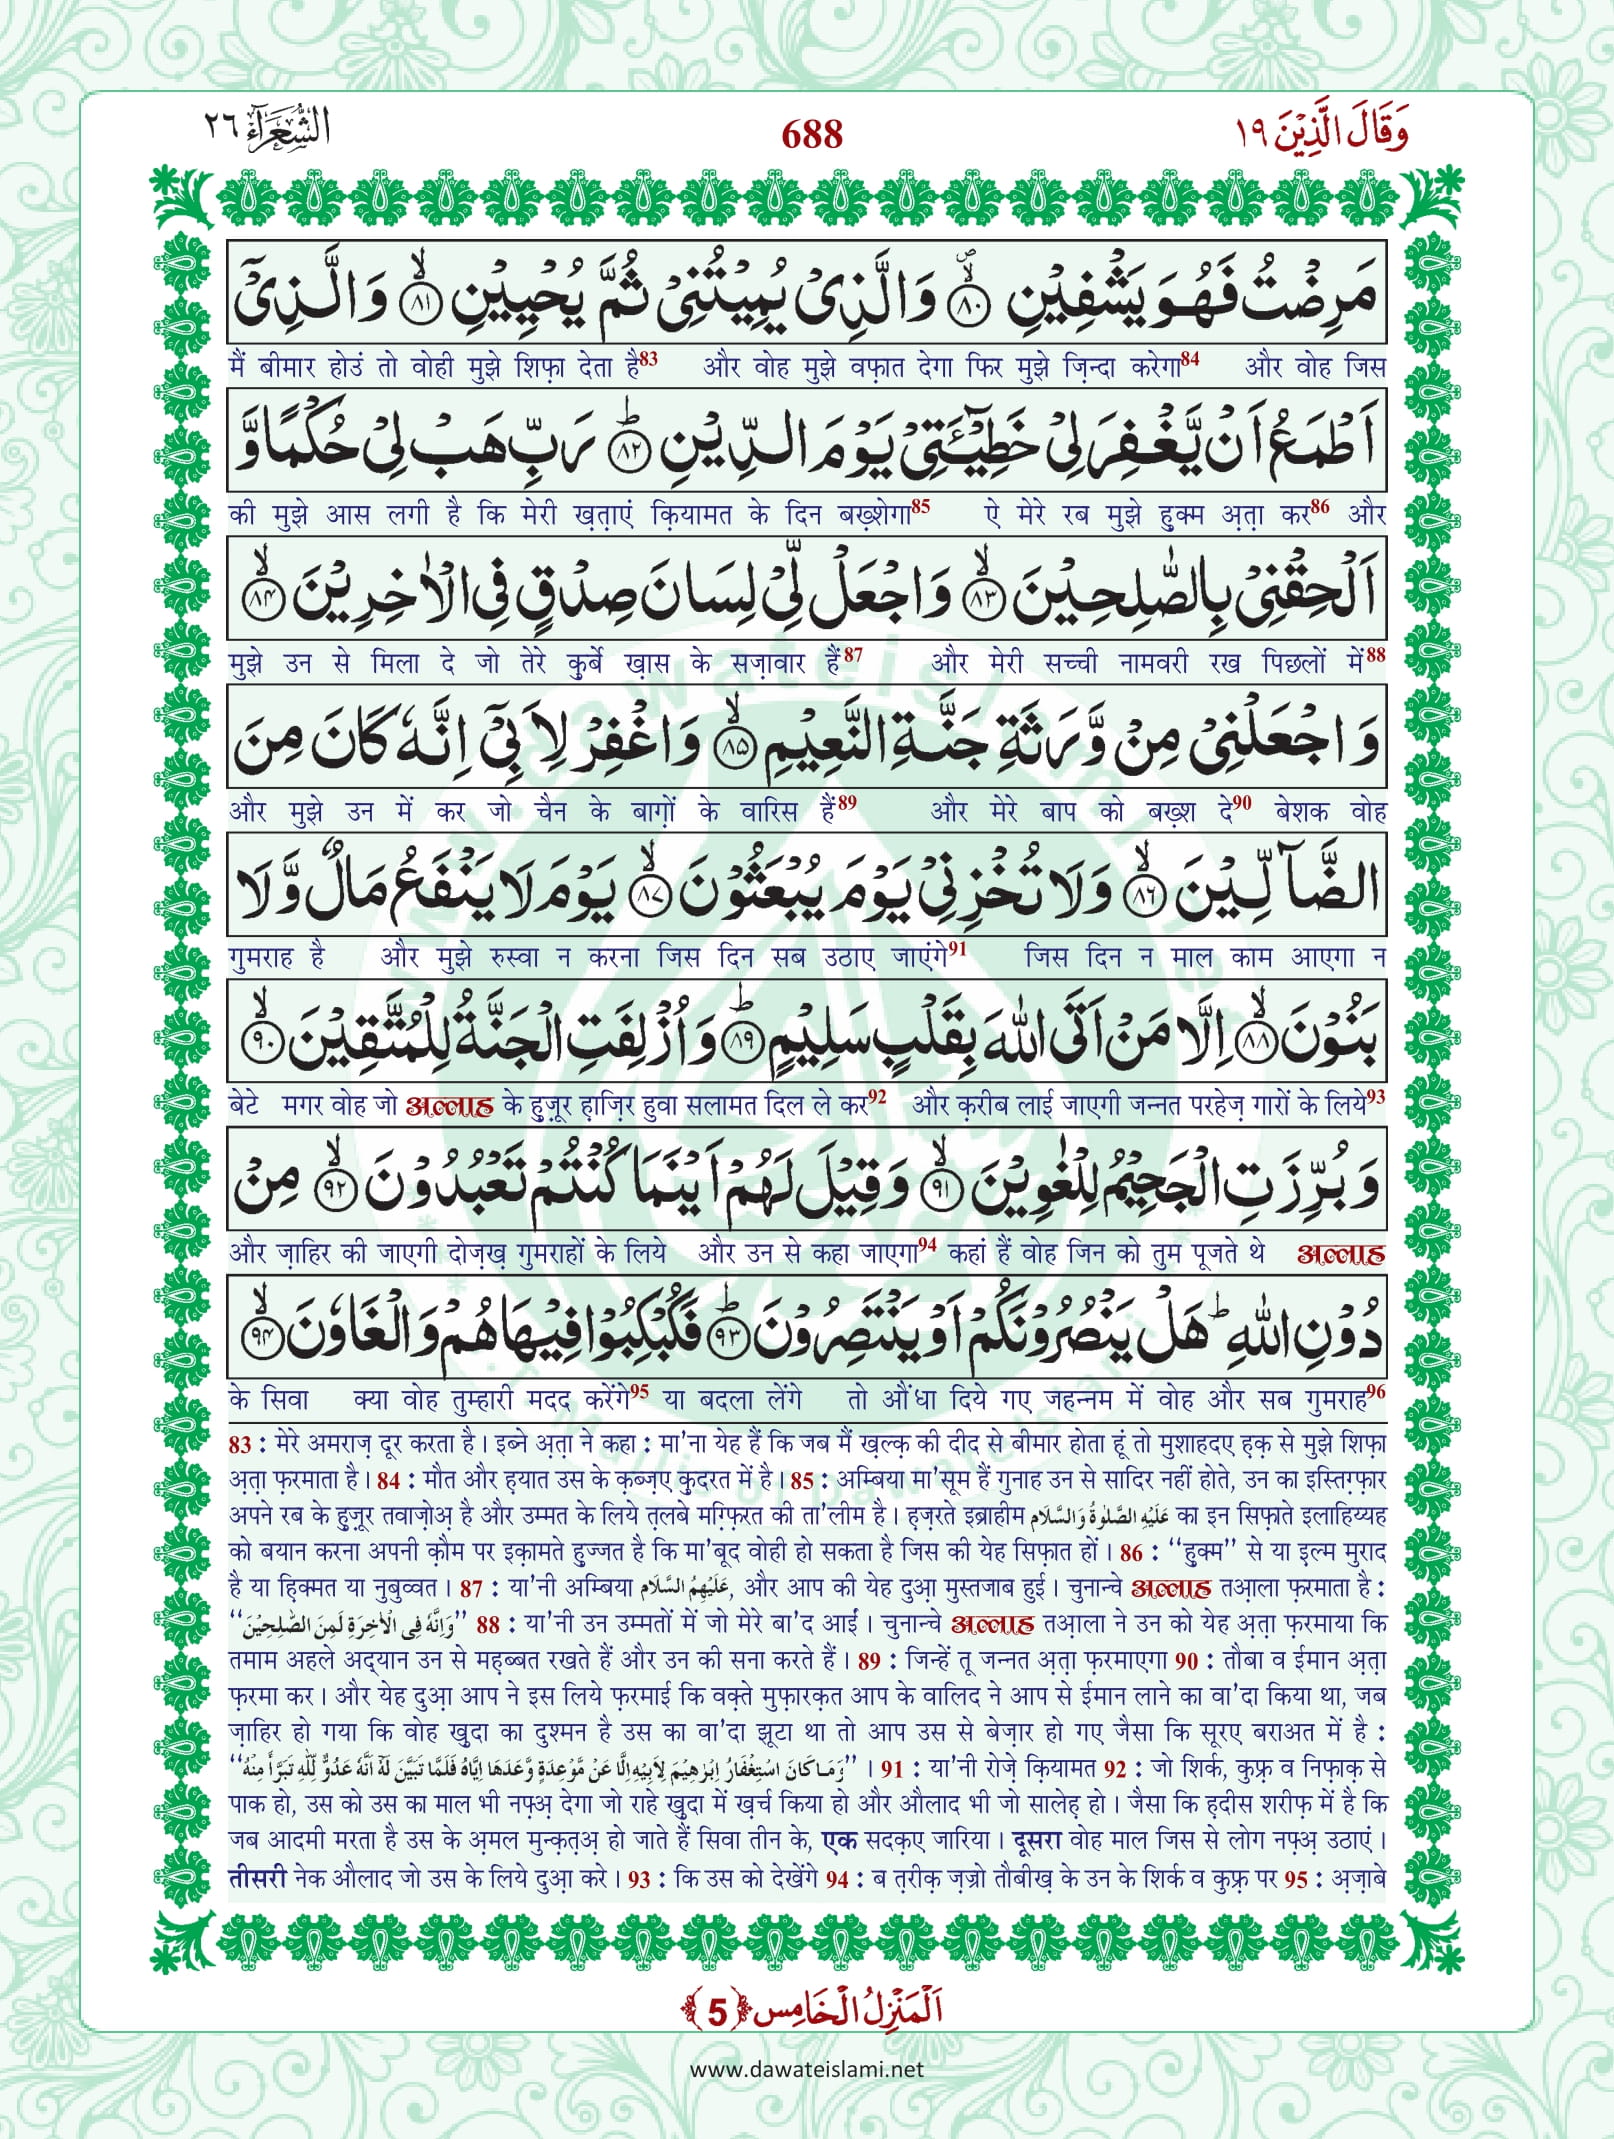 الشُّعَرَآء ٢٦ 688 وَقَالَ الَّذِيْنَ ١٩
مَرِضْتُ فَهُوَ يَشْفِيْنِ ﴿۸۰﴾ وَالَّذِيْ يُمِيْتُنِيْ ثُمَّ يُحْيِيْنِ ﴿۸۱﴾ وَالَّذِيْٓ
मैं बीमार होउं तो वोही मुझे शिफ़ा देता है83 और वोह मुझे वफ़ात देगा फिर मुझे ज़िन्दा करेगा84 और वोह जिस
اَطْمَعُ اَنْ يَّغْفِرَ لِيْ خَطِيْٓئَتِيْ يَوْمَ الدِّيْنِ ﴿۸۲﴾ رَبِّ هَبْ لِيْ حُكْمًا وَّ
की मुझे आस लगी है कि मेरी ख़त़ाएं क़ियामत के दिन बख़्शेगा85 ऐ मेरे रब मुझे हुक्म अ़त़ा कर86 और
اَلْحِقْنِيْ بِالصّٰلِحِيْنَ ﴿۸۳﴾ وَاجْعَلْ لِّيْ لِسَانَ صِدْقٍ فِي الْاٰخِرِيْنَ ﴿۸۴﴾
मुझे उन से मिला दे जो तेरे क़ुर्बे ख़ास के सज़ावार हैं87 और मेरी सच्ची नामवरी रख पिछलों में88
وَاجْعَلْنِيْ مِنْ وَّرَثَةِ جَنَّةِ النَّعِيْمِ ﴿۸۵﴾ وَاغْفِرْ لِاَبِيْٓ اِنَّهٗ كَانَ مِنَ
और मुझे उन में कर जो चैन के बाग़ों के वारिस हैं89 और मेरे बाप को बख़्श दे90 बेशक वोह
الضَّآلِّيْنَ ﴿۸۶﴾ وَلَا تُخْزِنِيْ يَوْمَ يُبْعَثُوْنَ ﴿۸۷﴾ يَوْمَ لَا يَنْفَعُ مَالٌ وَّلَا
गुमराह है और मुझे रुस्वा न करना जिस दिन सब उठाए जाएंगे91 जिस दिन न माल काम आएगा न
بَنُوْنَ ﴿۸۸﴾ اِلَّا مَنْ اَتَى اللّٰهَ بِقَلْبٍ سَلِيْمٍ ﴿۸۹﴾ وَاُزْلِفَتِ الْجَنَّةُ لِلْمُتَّقِيْنَ ﴿۹۰﴾
बेटे मगर वोह जो अल्लाह के हुज़ूर ह़ाज़िर हुवा सलामत दिल ले कर92 और क़रीब लाई जाएगी जन्नत परहेज़ गारों के लिये93
وَبُرِّزَتِ الْجَحِيْمُ لِلْغٰوِيْنَ ﴿۹۱﴾ وَقِيْلَ لَهُمْ اَيْنَمَا كُنْتُمْ تَعْبُدُوْنَ ﴿۹۲﴾ مِنْ
और ज़ाहिर की जाएगी दोज़ख़ गुमराहों के लिये और उन से कहा जाएगा94 कहां हैं वोह जिन को तुम पूजते थे अल्लाह
دُوْنِ اللّٰهِ ؕ هَلْ يَنْصُرُوْنَكُمْ اَوْ يَنْتَصِرُوْنَ ﴿۹۳﴾ فَكُبْكِبُوْا فِيْهَا هُمْ وَالْغَاوٗنَ ﴿۹۴﴾
के सिवा क्या वोह तुम्हारी मदद करेंगे95 या बदला लेंगे तो औंधा दिये गए जहन्नम में वोह और सब गुमराह96
83 : मेरे अमराज़ दूर करता है। इब्ने अ़त़ा ने कहा : मा'ना येह हैं कि जब मैं ख़ल्क़ की दीद से बीमार होता हूं तो मुशाहदए ह़क़ से मुझे शिफ़ा
अ़त़ा फ़रमाता है। 84 : मौत और ह़यात उस के क़ब्ज़ए क़ुदरत में है। 85 : अम्बिया मा'सूम हैं गुनाह उन से सादिर नहीं होते, उन का इस्तिग़्फ़ार
अपने रब के हुज़ूर तवाज़ोअ़ है और उम्मत के लिये त़लबे मग़्फ़िरत की ता'लीम है। ह़ज़रते इब्राहीम عَلَيْهِ الصَّلٰوةُ وَالسَّلَام का इन सिफ़ाते इलाहिय्यह
को बयान करना अपनी क़ौम पर इक़ामते हुज्जत है कि मा'बूद वोही हो सकता है जिस की येह सिफ़ात हों। 86 : ‘‘हुक्म’’ से या इल्म मुराद
है या ह़िक्मत या नुबुव्वत। 87 : या'नी अम्बिया عَلَيْهِمُ السَّلَام, और आप की येह दुआ़ मुस्तजाब हुई। चुनान्चे अल्लाह तआ़ला फ़रमाता है :
‘‘وَاِنَّهٗ فِى الْاٰخِرَةِ لَمِنَ الصّٰلِحِيْنَ’’ 88 : या'नी उन उम्मतों में जो मेरे बा'द आईं। चुनान्चे अल्लाह तआ़ला ने उन को येह अ़त़ा फ़रमाया कि
तमाम अहले अद्यान उन से मह़ब्बत रखते हैं और उन की सना करते हैं। 89 : जिन्हें तू जन्नत अ़त़ा फ़रमाएगा 90 : तौबा व ईमान अ़त़ा
फ़रमा कर। और येह दुआ़ आप ने इस लिये फ़रमाई कि वक़्ते मुफ़ारक़त आप के वालिद ने आप से ईमान लाने का वा'दा किया था, जब
ज़ाहिर हो गया कि वोह ख़ुदा का दुश्मन है उस का वा'दा झूटा था तो आप उस से बेज़ार हो गए जैसा कि सूरए बराअत में है :
‘‘وَمَا كَانَ اسْتِغْفَارُ اِبْرٰهِيْمَ لِاَبِيْهِ اِلَّا عَنْ مَّوْعِدَةٍ وَّعَدَهَا اِيَّاهُ فَلَمَّا تَبَيَّنَ لَهٗ اَنَّهٗ عَدُوٌّ لِّلّٰهِ تَبَرَّاَ مِنْهُ’’। 91 : या'नी रोज़े क़ियामत 92 : जो शिर्क, कुफ़्र व निफ़ाक़ से
पाक हो, उस को उस का माल भी नफ़्अ़ देगा जो राहे ख़ुदा में ख़र्च किया हो और औलाद भी जो सालेह़ हो। जैसा कि ह़दीस शरीफ़ में है कि
जब आदमी मरता है उस के अ़मल मुन्क़त़अ़ हो जाते हैं सिवा तीन के, एक सदक़ए जारिया। दूसरा वोह माल जिस से लोग नफ़्अ़ उठाएं।
तीसरी नेक औलाद जो उस के लिये दुआ़ करे। 93 : कि उस को देखेंगे 94 : ब त़रीक़ ज़ज्रो तौबीख़ के उन के शिर्क व कुफ़्र पर 95 : अ़ज़ाबे
اَلْمَنْزِلُ الْخَامِس ﴿5﴾
www.dawateislami.net